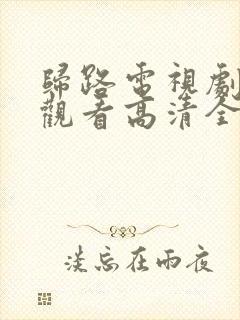 歸路電視劇
觀看高清全
淡忘在雨夜